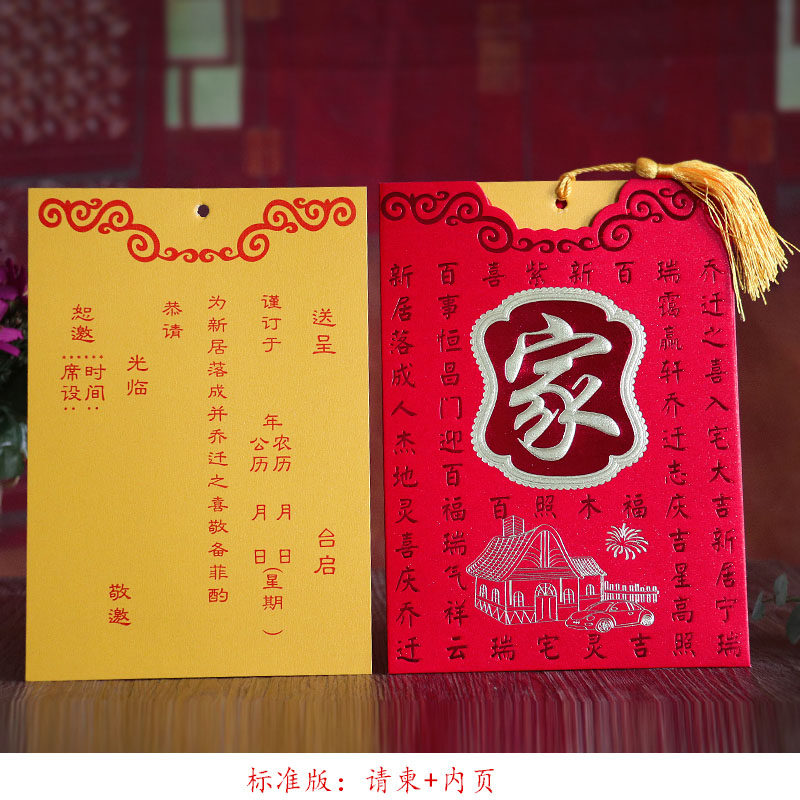 送呈 台启
谨订于 年 农历 公历 月 月 日 日 (星期 )
为新居落成并乔迁之喜敬备菲酌
恭请
光临
敬邀
恕邀
时间
席设
乔迁之喜入宅大吉新居宁瑞
瑞霭赢轩乔迁志庆吉星高照
百 福 吉
新 木 灵
紫 照 宅
喜 百 瑞
百事恒昌门迎百福瑞气祥云
新居落成人杰地灵喜庆乔迁
家
标准版：请柬+内页